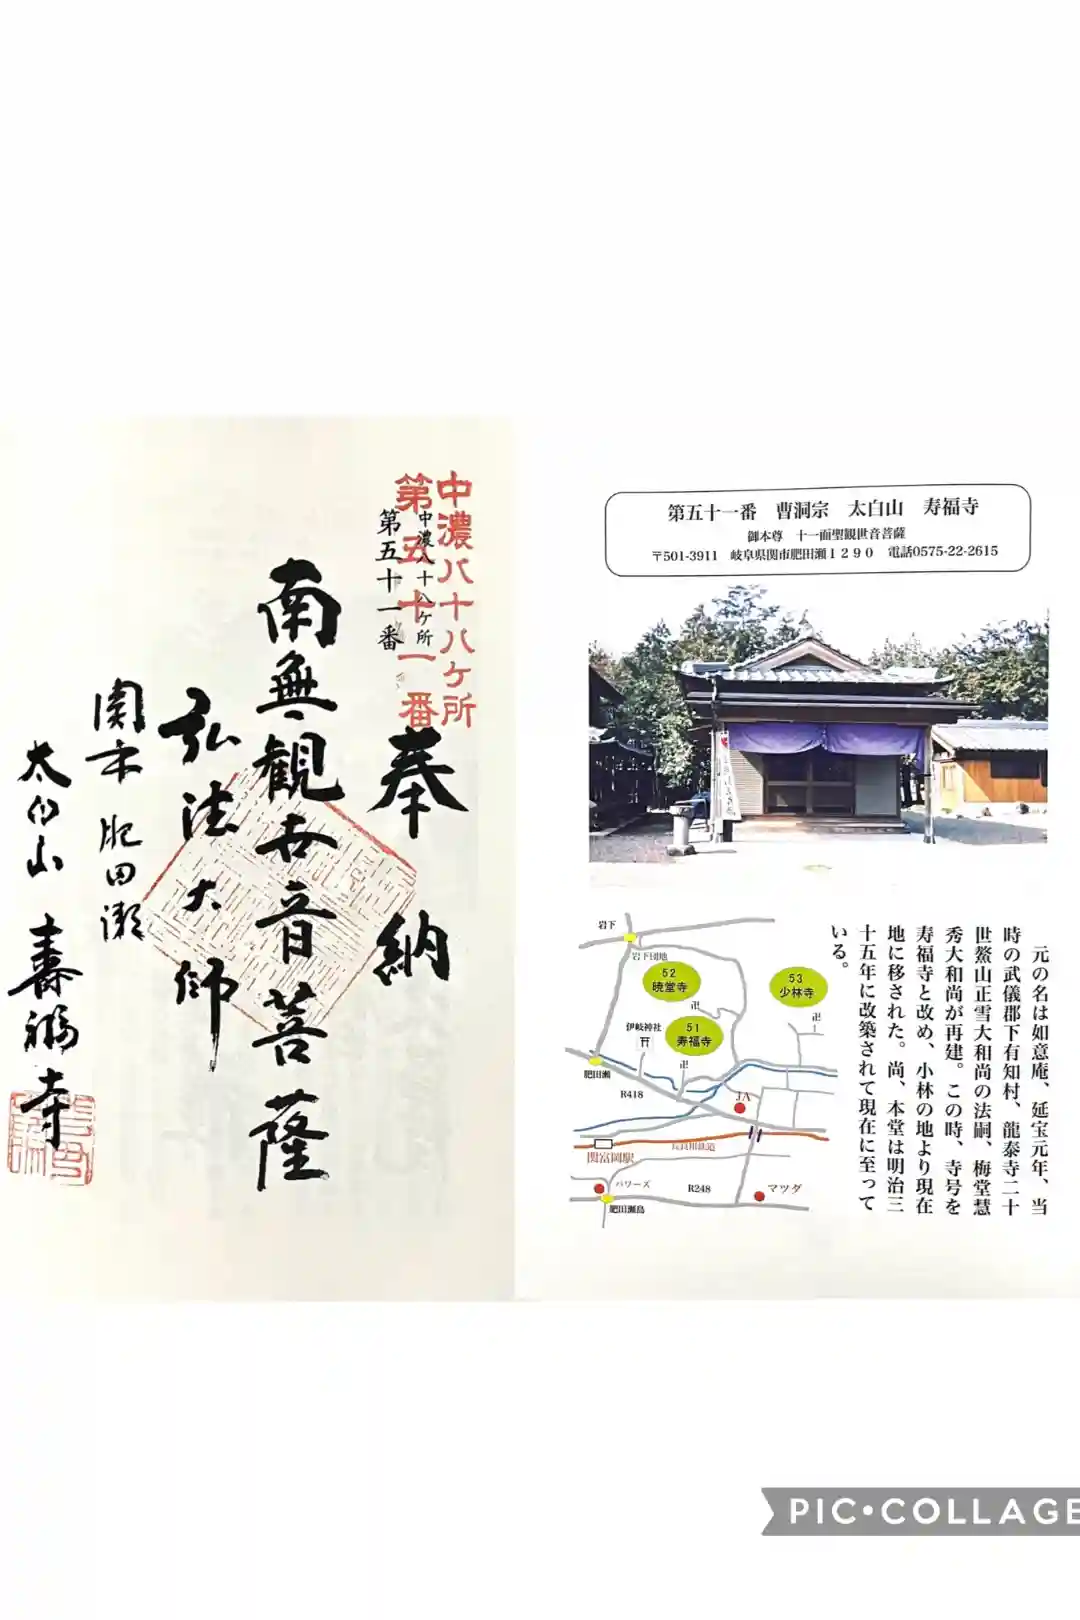 中濃八十八ケ所
第五十一番
中濃八十八ケ所
第五十一番
奉納
南無観世音菩薩
弘法大師
関市肥田瀬
太白山 壽福寺
第五十一番 曹洞宗 太白山 寿福寺
御本尊 十一面聖観世音菩薩
〒501-3911 岐阜県関市肥田瀬1290 電話0575-22-2615
元の名は如意庵、延宝元年、当
時の武儀郡下有知村、龍泰寺二十
世鰲山正雪大和尚の法嗣、梅堂慧
秀大和尚が再建。この時、寺号を
寿福寺と改め、小林の地より現在
地に移された。尚、本堂は明治三
十五年に改築されて現在に至って
いる。
岩下
岩下団地
52
暁堂寺
卍
53
少林寺
卍
伊岐神社
51
寿福寺
卍
肥田瀬
R418
JA
長良川鉄道
関富岡駅
バワーズ
R248
マツダ
肥田瀬島
PIC•COLLAGE